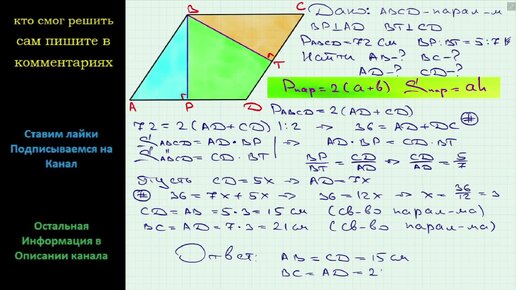 кто смог решить
сам пишите в
комментариях
Ставим лайки
Подписываемся на
Канал
Остальная
Информация в
Описании канала
B
C
T
A
P
D
Дано: ABCD-парал-м
BP⊥AD BT⊥CD
PABCD=72 см BP:BT=5:7
Найти AB-? BC-?
AD-? CD-?
Pпар=2(a+b) Sпар=ah
PABCD=2(AD+CD)
72=2(AD+CD) |:2 ⇒ 36=AD+DC #
SABCD=AD·BP ⇒ AD·BP=CD·BT
SABCD=CD·BT BP/BT=CD/AD ⇒ CD/AD=5/7
Пусть CD=5x ⇒ AD=7x
# 36=7x+5x ⇒ 36=12x ⇒ x=36/12=3
CD=AB=5·3=15см (св-во парал-ма)
BC=AD=7·3=21см (св-во парал-ма)
Ответ: AB=CD=15см
BC=AD=2